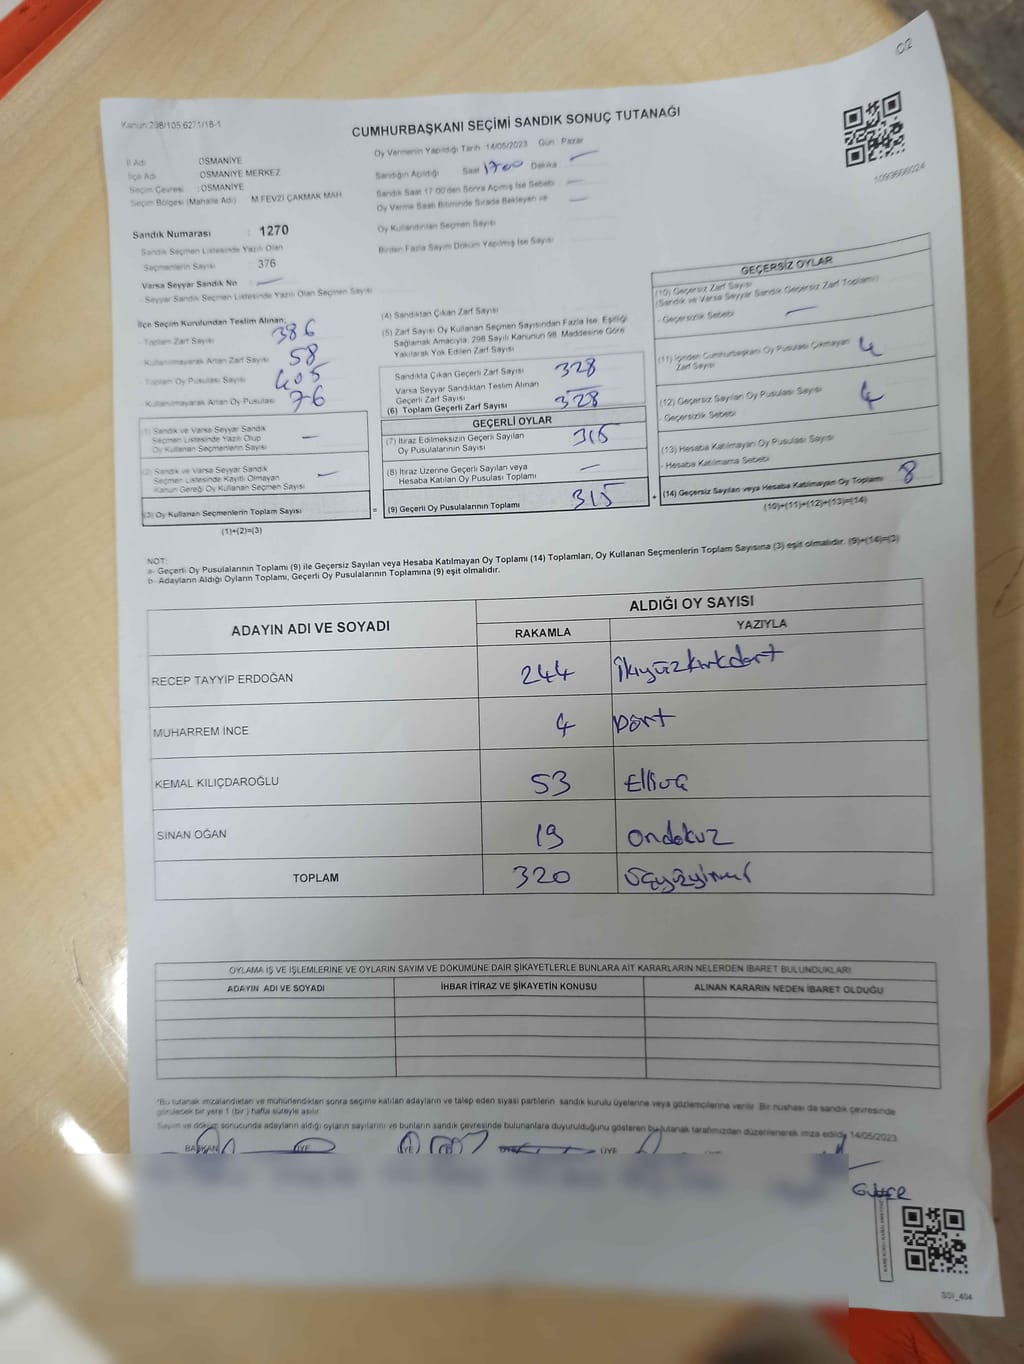 C/2
Kanun:298/105,6271/18-1
CUMHURBAŞKANI SEÇİMİ SANDIK SONUÇ TUTANAĞI
1093666024
İl Adı : OSMANİYE
İlçe Adı : OSMANİYE MERKEZ
Seçim Çevresi : OSMANİYE
Seçim Bölgesi (Mahalle Adı) : M.FEVZİ ÇAKMAK MAH
Oy Vermenin Yapıldığı Tarih : 14/05/2023 Gün : Pazar
Sandığın Açıldığı Saat 17 00 Dakika —
Sandık Saat 17:00'den Sonra Açılmış İse Sebebi —
Oy Verme Saati Bitiminde Sırada Bekleyen ve —
Oy Kullandırılan Seçmen Sayısı
Birden Fazla Sayım Döküm Yapılmış İse Sayısı
Sandık Numarası : 1270
Sandık Seçmen Listesinde Yazılı Olan
Seçmenlerin Sayısı : 376
Varsa Seyyar Sandık No —
- Seyyar Sandık Seçmen Listesinde Yazılı Olan Seçmen Sayısı
İlçe Seçim Kurulundan Teslim Alınan;
- Toplam Zarf Sayısı 386
Kullanılmayarak Artan Zarf Sayısı 58
Toplam Oy Pusulası Sayısı 405
Kullanılmayarak Artan Oy Pusulası 76
(1) Sandık ve Varsa Seyyar Sandık
Seçmen Listesinde Yazılı Olup
Oy Kullanan Seçmenlerin Sayısı —
(2) Sandık ve Varsa Seyyar Sandık
Seçmen Listesinde Kayıtlı Olmayan
Kanun Gereği Oy Kullanan Seçmen Sayısı —
(3) Oy Kullanan Seçmenlerin Toplam Sayısı
(1)+(2)=(3)
(4) Sandıktan Çıkan Zarf Sayısı
(5) Zarf Sayısı Oy Kullanan Seçmen Sayısından Fazla İse, Eşitliği
Sağlamak Amacıyla, 298 Sayılı Kanunun 98. Maddesine Göre
Yakılarak Yok Edilen Zarf Sayısı
Sandıkta Çıkan Geçerli Zarf Sayısı 328
Varsa Seyyar Sandıktan Teslim Alınan
Geçerli Zarf Sayısı —
(6) Toplam Geçerli Zarf Sayısı 328
GEÇERLİ OYLAR
(7) İtiraz Edilmeksizin Geçerli Sayılan
Oy Pusulalarının Sayısı 315
(8) İtiraz Üzerine Geçerli Sayılan veya
Hesaba Katılan Oy Pusulası Toplamı —
= (9) Geçerli Oy Pusulalarının Toplamı 315 +
GEÇERSİZ OYLAR
(10) Geçersiz Zarf Sayısı
(Sandık ve Varsa Seyyar Sandık Geçersiz Zarf Toplamı)
- Geçersizlik Sebebi —
(11) İçinden Cumhurbaşkanı Oy Pusulası Çıkmayan
Zarf Sayısı 4
(12) Geçersiz Sayılan Oy Pusulası Sayısı 4
- Geçersizlik Sebebi
(13) Hesaba Katılmayan Oy Pusulası Sayısı
- Hesaba Katılmama Sebebi
(14) Geçersiz Sayılan veya Hesaba Katılmayan Oy Toplamı 8
(10)+(11)+(12)+(13)=(14)
NOT:
a- Geçerli Oy Pusulalarının Toplamı (9) ile Geçersiz Sayılan veya Hesaba Katılmayan Oy Toplamı (14) Toplamları, Oy Kullanan Seçmenlerin Toplam Sayısına (3) eşit olmalıdır. (9)+(14)=(3)
b- Adayların Aldığı Oyların Toplamı, Geçerli Oy Pusulalarının Toplamına (9) eşit olmalıdır.
ADAYIN ADI VE SOYADI ALDIĞI OY SAYISI
RAKAMLA YAZIYLA
RECEP TAYYİP ERDOĞAN 244 ikiyüzkırkdört
MUHARREM İNCE 4 Dört
KEMAL KILIÇDAROĞLU 53 Elliüç
SİNAN OĞAN 19 ondokuz
TOPLAM 320 üçyüzyirmi
OYLAMA İŞ VE İŞLEMLERİNE VE OYLARIN SAYIM VE DÖKÜMÜNE DAİR ŞİKAYETLERLE BUNLARA AİT KARARLARIN NELERDEN İBARET BULUNDUKLARI
ADAYIN ADI VE SOYADI İHBAR İTİRAZ VE ŞİKAYETİN KONUSU ALINAN KARARIN NEDEN İBARET OLDUĞU
*Bu tutanak imzalandıktan ve mühürlendikten sonra seçime katılan adayların ve talep eden siyasi partilerin sandık kurulu üyelerine veya gözlemcilerine verilir. Bir nüshası da sandık çevresinde
görülecek bir yere 1 (bir ) hafta süreyle asılır.
Sayım ve döküm sonucunda adayların aldığı oyların sayılarını ve bunların sandık çevresinde bulunanlara duyurulduğunu gösteren bu tutanak tarafımızdan düzenlenerek imza edildi. 14/05/2023
BAŞKAN ÜYE ÜYE ÜYE ÜYE
SSI_404